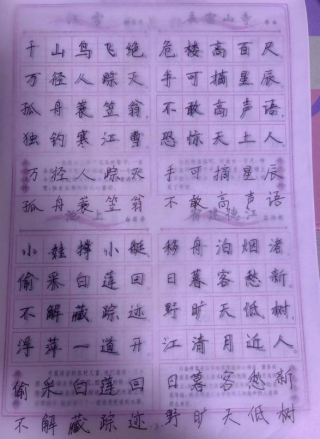 江雪
千山鸟飞绝
万径人踪灭
孤舟蓑笠翁
独钓寒江雪
万径人踪灭
孤舟蓑笠翁
夜宿山寺
危楼高百尺
手可摘星辰
不敢高声语
恐惊天上人
手可摘星辰
不敢高声语
小娃撑小艇
偷采白莲回
不解藏踪迹
浮萍一道开
偷采白莲回
不解藏踪迹
宿建德江
移舟泊烟渚
日暮客愁新
野旷天低树
江清月近人
日暮客愁新
野旷天低树